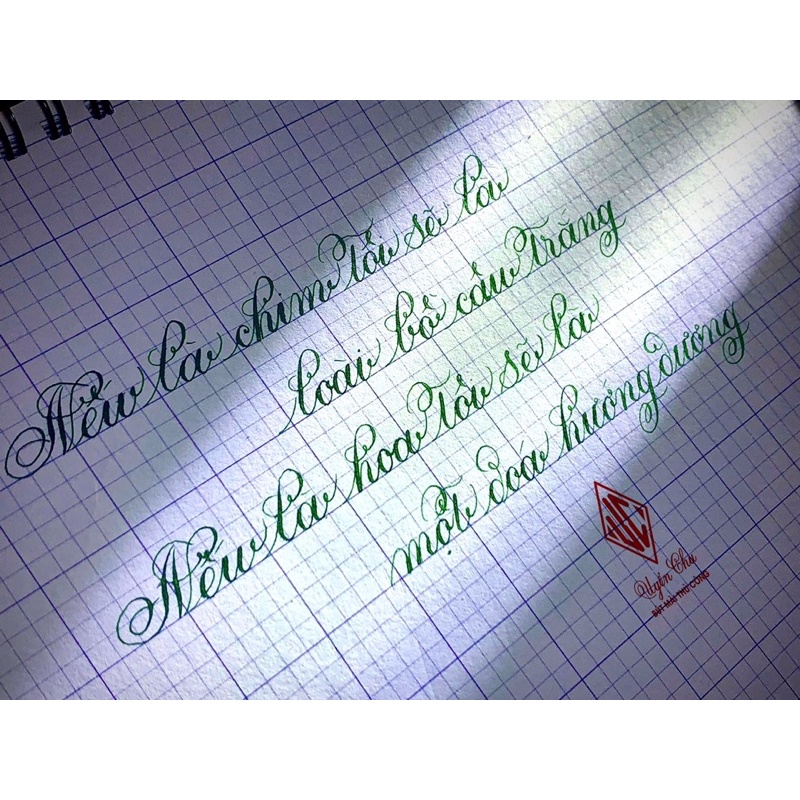 Nếu là chim Tôi sẽ là
loài bồ câu Trắng
Nếu là hoa Tôi sẽ là
một đoá hướng dương
UC
Uyên Chu
BÚT MÀI THỦ CÔNG